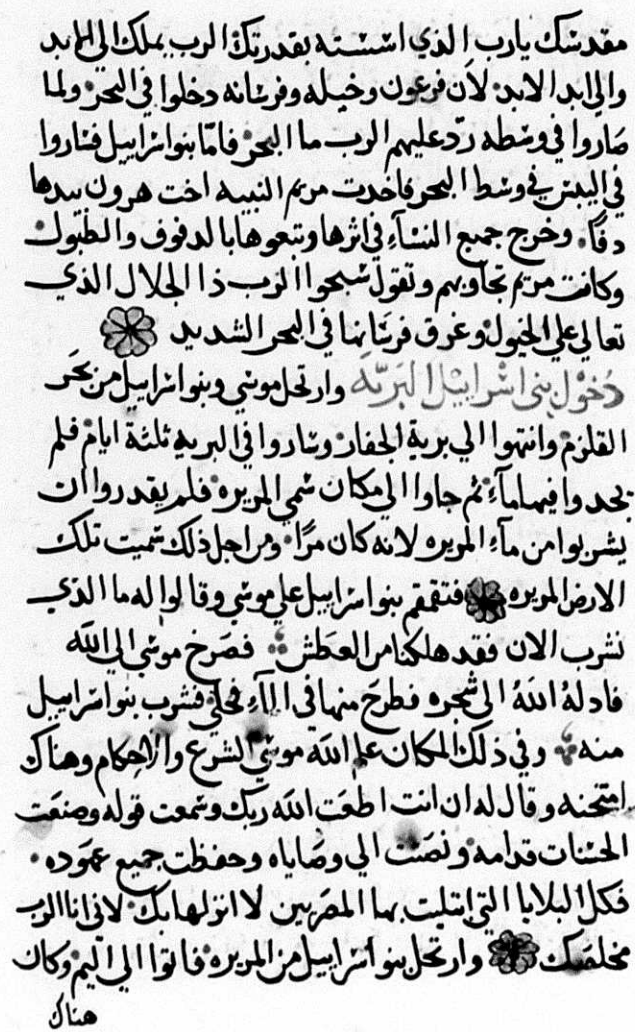 مقدسك يارب الذي اسسته بقدرتك الرب يملك الي الابد
والي ابد الابد لان فرعون وخيله وفرسانه دخلوا في البحر ولما
صاروا في وسطه رد عليهم الرب ما البحر فاما بنوا اسراييل فساروا
في اليبس في وسط البحر فاخدت مريم النبيه اخت هرون بيدها
دفا وخرج جميع النسآء في اثرها وتبعوها بالدفوف والطبول
وكانت مريم تجاوبهم وتقول سبحوا الرب ذا الجلال الذي
تعالي علي الخيول وغرق فرسانها في البحر الشديد
دخول بني اسراييل البريه وارتحل موسي وبنوا اسراييل من بحر
القلزم وانتهوا الي برية الجفار وساروا في البريه ثلثة ايام فلم
يجدوا فيها مآء ثم جاوا الي مكان سمي المريره فلم يقدروا ان
يشربوا من مآء المريره لانه كان مرا ومن اجل ذلك سميت تلك
الارض المريره فتقمقم بنوا اسراييل علي موسي وقالوا له ما الذي
نشرب الان فقد هلكنا من العطش فصرخ موسي الي الله
فادله الله الي شجره فطرح منها في المآء فحلي فشرب بنوا اسراييل
منه وفي ذلك المكان علم الله موسي الشرع والاحكام وهناك
امتحنه وقال له ان انت اطعت الله ربك وسمعت قوله وصنعت
الحسنات قدامه ونصت الي وصاياه وحفظت جميع عهوده
فكل البلايا التي ابتليت بها المصريين لا انزلها بك لاني انا الرب
مخلصك وارتحل بنوا اسراييل من المريره فاتوا الي اليم وكان
هناك